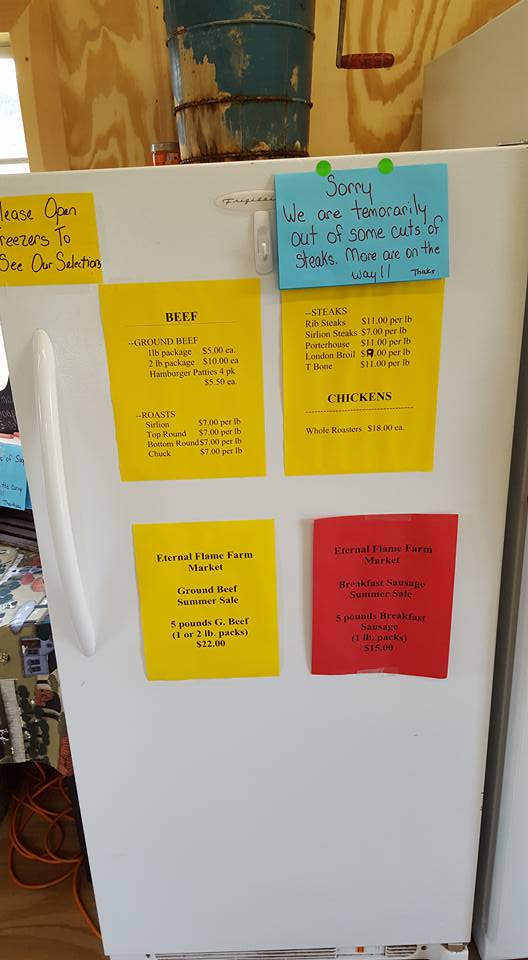 lease Open
reezers To
See Our Selections
Frigidai
Sorry
We are temorarily
out of some cuts of
steaks. More are on the
way!!
Thaks
BEEF
--GROUND BEEF
1lb package $5.00 ea.
2 lb package $10.00 ea
Hamburger Patties 4 pk
$5.50 ea.
--ROASTS
Sirlion $7.00 per lb
Top Round $7.00 per lb
Bottom Round $7.00 per lb
Chuck $7.00 per lb
--STEAKS
Rib Steaks $11.00 per lb
Sirlion Steaks $7.00 per lb
Porterhouse $11.00 per lb
London Broil $9.00 per lb
T Bone $11.00 per lb
CHICKENS
Whole Roasters $18.00 ea.
Eternal Flame Farm
Market
Ground Beef
Summer Sale
5 pounds G. Beef
(1 or 2 lb. packs)
$22.00
Eternal Flame Farm
Market
Breakfast Sausage
Summer Sale
5 pounds Breakfast
Sausage
(1 lb. packs)
$15.00